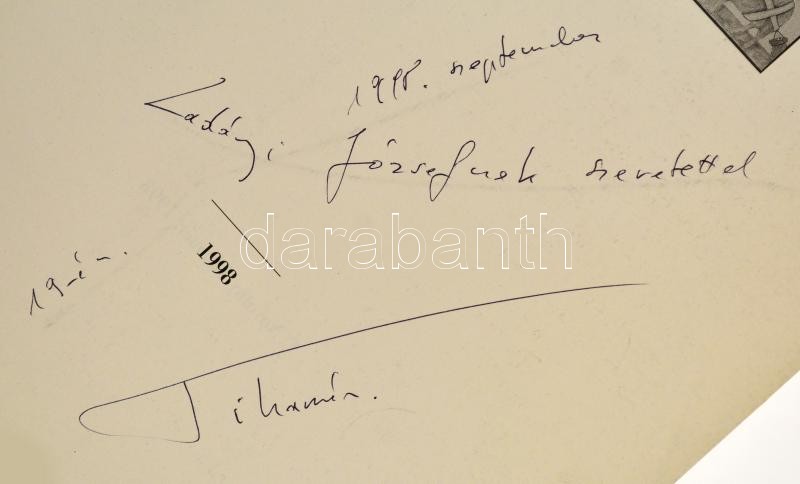 Ladányi Józsefnek szeretettel
1998. szeptember
19-én.
1998
Tihamér.
darabanth